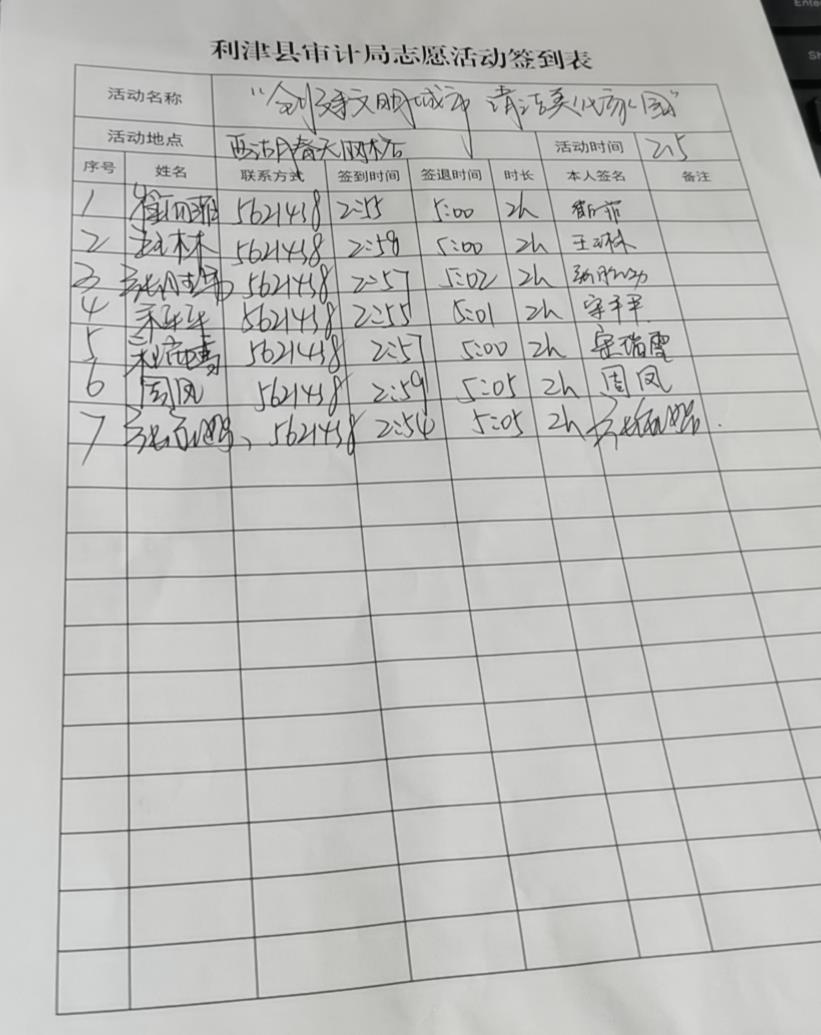 利津县审计局志愿活动签到表
活动名称 "创建文明城市 清洁美化家园"
活动地点 活动时间 2.15
序号 姓名 联系方式 签到时间 签退时间 时长 本人签名 备注
1 5621438 2:55 5:00 2h
2 5621438 2:58 5:00 2h
3 5621438 2:57 5:02 2h
4 5621438 2:55 5:01 2h
5 5621438 2:57 5:00 2h 宋瑞雪
6 周凤 5621438 2:59 5:05 2h 周凤
7 5621438 2:54 5:05 2h